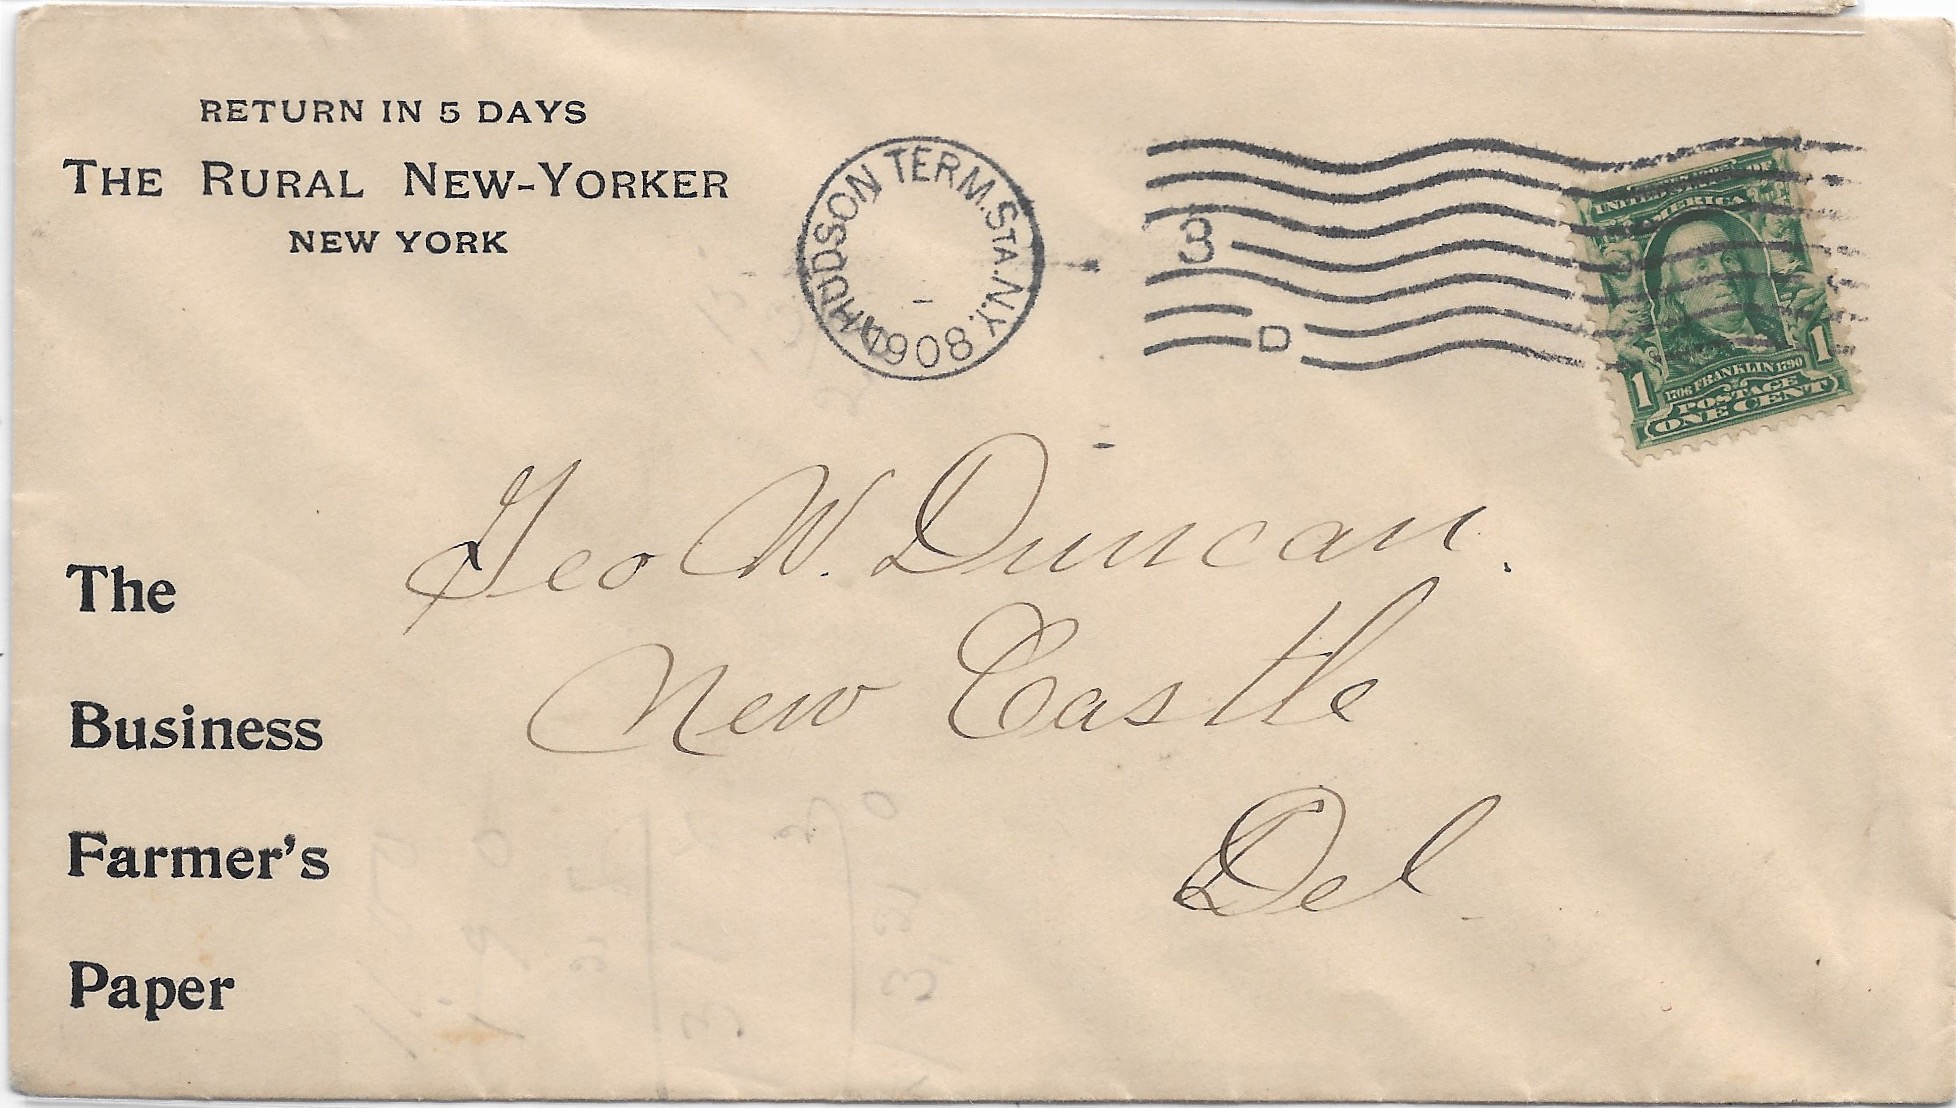 RETURN IN 5 DAYS
THE RURAL NEW-YORKER
NEW YORK
HUDSON TERM. STA. N.Y.
3
D
UNITED STATES OF
AMERICA
1 1
1706 FRANKLIN 1790
POSTAGE
ONE CENT
Geo W. Duncan.
New Castle
Del.
The
Business
Farmer's
Paper